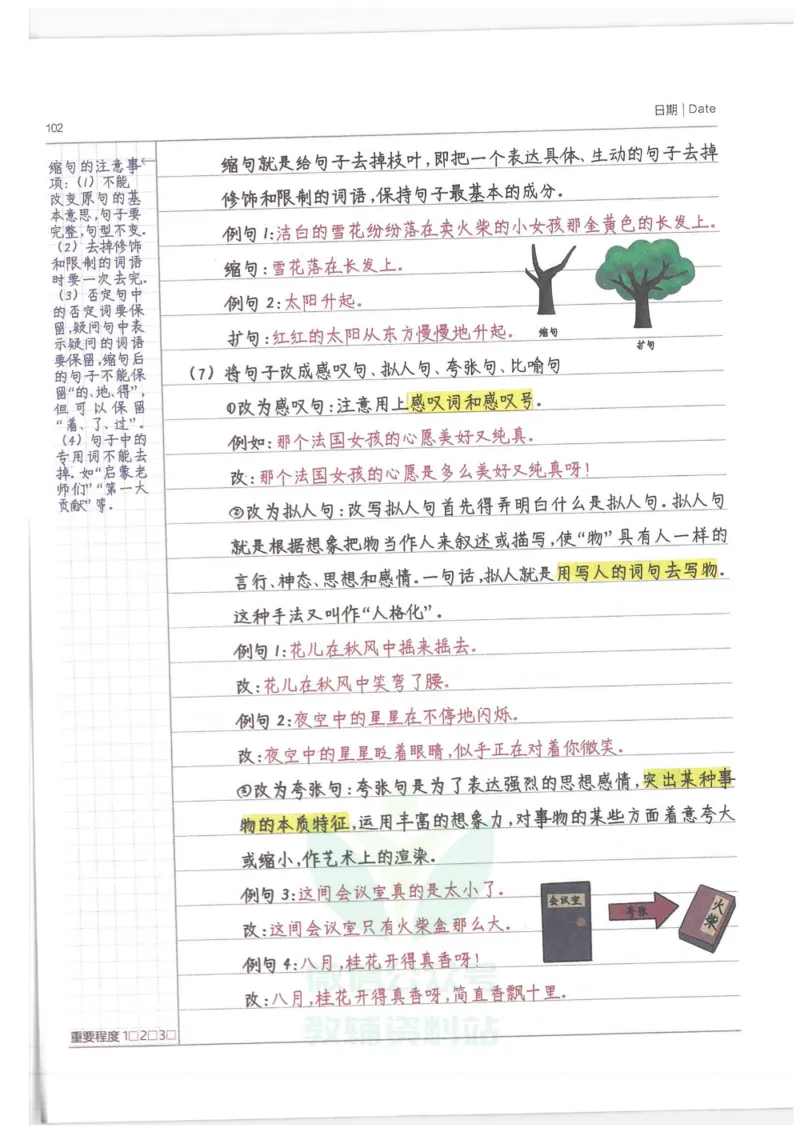 日期 | Date
102
缩句的注意事
项:(1)不能
改变原句的基
本意思,句子要
完整,句型不变.
(2)去掉修饰
和限制的词语
时要一次去完.
(3)否定句中
的否定词要保
留,疑问句中表
示疑问的词语
要保留,缩句后
的句子不能保
留“的、地、得”,
但可以保留
“着、了、过”.
(4)句子中的
专用词不能去
掉.如“启蒙老
师们”“第一大
贡献”等.
缩句就是给句子去掉枝叶,即把一个表达具体、生动的句子去掉
修饰和限制的词语,保持句子最基本的成分.
例句1:洁白的雪花纷纷落在卖火柴的小女孩那金黄色的长发上.
缩句:雪花落在长发上.
例句2:太阳升起.
扩句:红红的太阳从东方慢慢地升起.
缩句
扩句
(7)将句子改成感叹句、拟人句、夸张句、比喻句
①改为感叹句:注意用上感叹词和感叹号.
例如:那个法国女孩的心愿美好又纯真.
改:那个法国女孩的心愿是多么美好又纯真呀!
②改为拟人句:改写拟人句首先得弄明白什么是拟人句.拟人句
就是根据想象把物当作人来叙述或描写,使“物”具有人一样的
言行、神态、思想和感情.一句话,拟人就是用写人的词句去写物.
这种手法又叫作“人格化”.
例句1:花儿在秋风中摇来摇去.
改:花儿在秋风中笑弯了腰.
例句2:夜空中的星星在不停地闪烁.
改:夜空中的星星眨着眼睛,似乎正在对着你微笑.
③改为夸张句:夸张句是为了表达强烈的思想感情,突出某种事
物的本质特征,运用丰富的想象力,对事物的某些方面着意夸大
或缩小,作艺术上的渲染.
例句3:这间会议室真的是太小了.
改:这间会议室只有火柴盒那么大.
会议室
夸张
火柴
例句4:八月,桂花开得真香呀!
改:八月,桂花开得真香呀,简直香飘十里.
微信公众号
教辅资料站
重要程度 1□2□3□